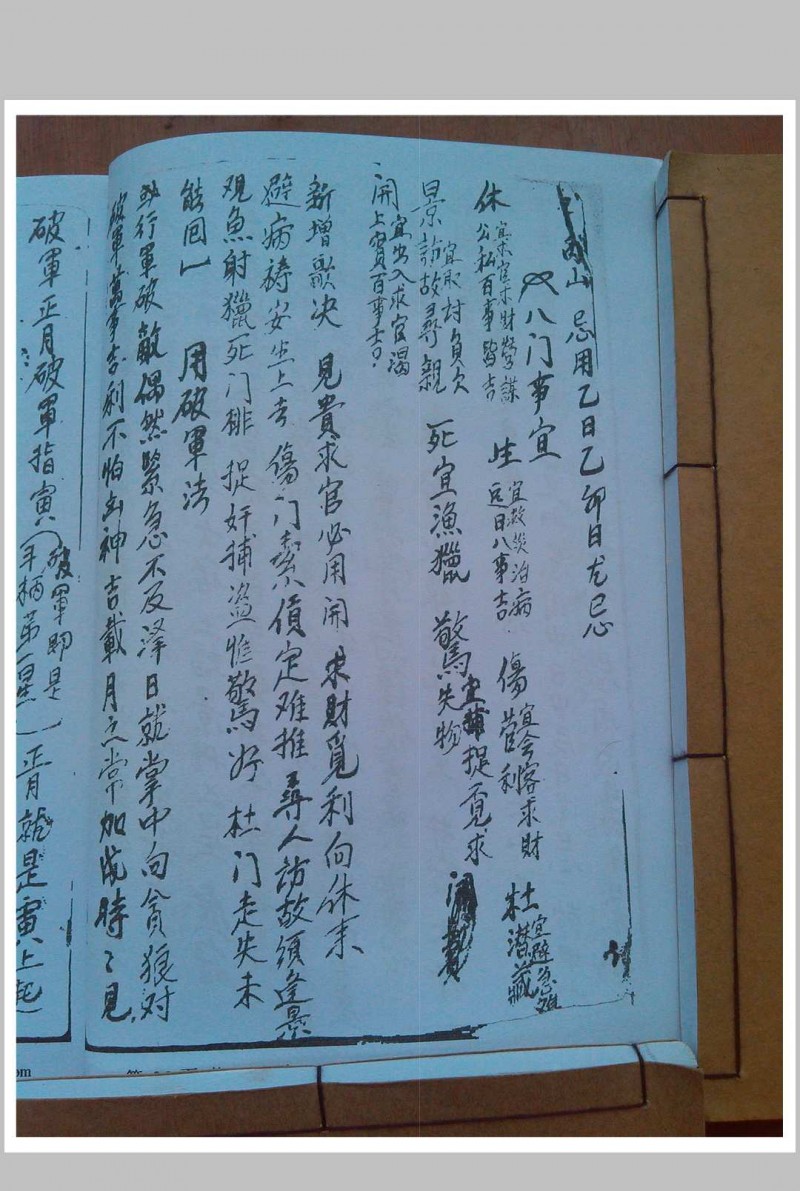 山 忌用乙日乙卯日尤忌
八门事宜
休 宜求官求财營謀 公私百事皆吉 生 宜救災治病 日八事吉 傷 宜会客求财 营利 杜 宜避急难 潜藏
景 宜取討負欠 訪故尋親 死 宜漁獵 驚 宜捕捉 覓求失物
開 宜出入求官謁 上賓百事吉
新增歌决 見貴求官必用開 求財覓利向休来
避病祷安生上去 傷门索債定难推 尋人訪故須逢景
观魚射獵死门排 捉奸捕盗惟驚好 杜门走失未
能回
用破軍法
行軍破敵偶然緊急不及泽日就掌中向貪狼对
破軍萬事吉利不怕凶神吉載月月常加戌時々見
破軍正月破軍指寅（破軍即是
柄第一星）正月就是寅上起